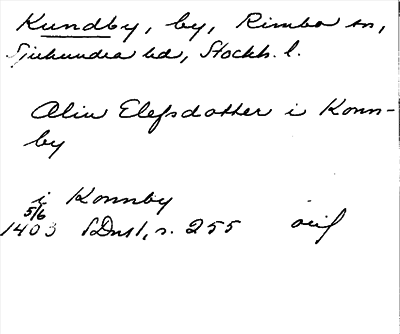 Kundby, by, Rimbo sn,
Sjuhundra hd, Stockh. l.
Alin Elefsdotter i Konn-
by
i Konnby
5/6
1403 SDns1, s. 255 orig